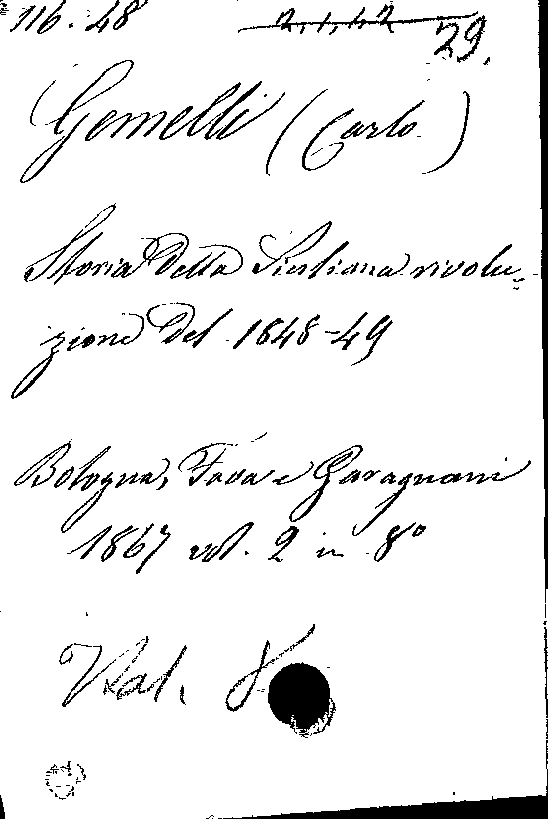 116. 48 2,1,42
29.
Gemelli (Carlo)
Storia della Siciliana rivolu-
zione del 1848-49
Bologna, Fava e Garagnani
1867 vol. 2 in 8°